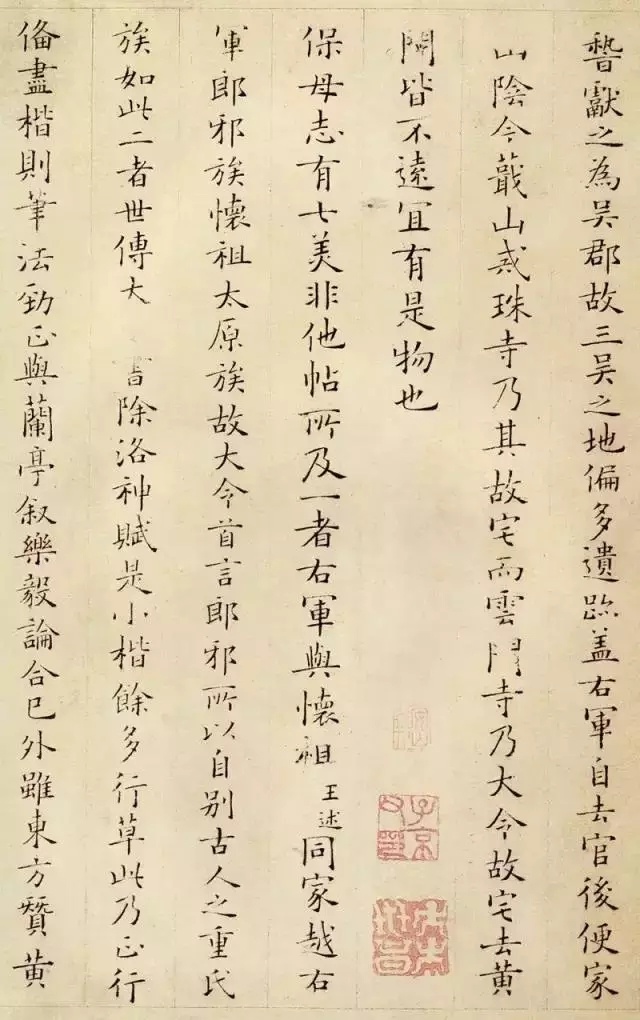 獻之為吳郡故三吳之地偏多遺跡盖右軍自去官後便家
山陰今蕺山戒珠寺乃其故宅而雲門寺乃大令故宅去黃
閍皆不遠宜有是物也
保母志有七美非他帖所及一者右軍與懷祖王述同家越右
軍郎邪族懷祖太原族故大令首言郎邪所以自别古人之重氏
族如此二者世傳大書除洛神賦是小楷餘多行草此乃正行
俻盡楷則筆法勁正與蘭亭叙樂毅論合已外雖東方贊黃
子京父印